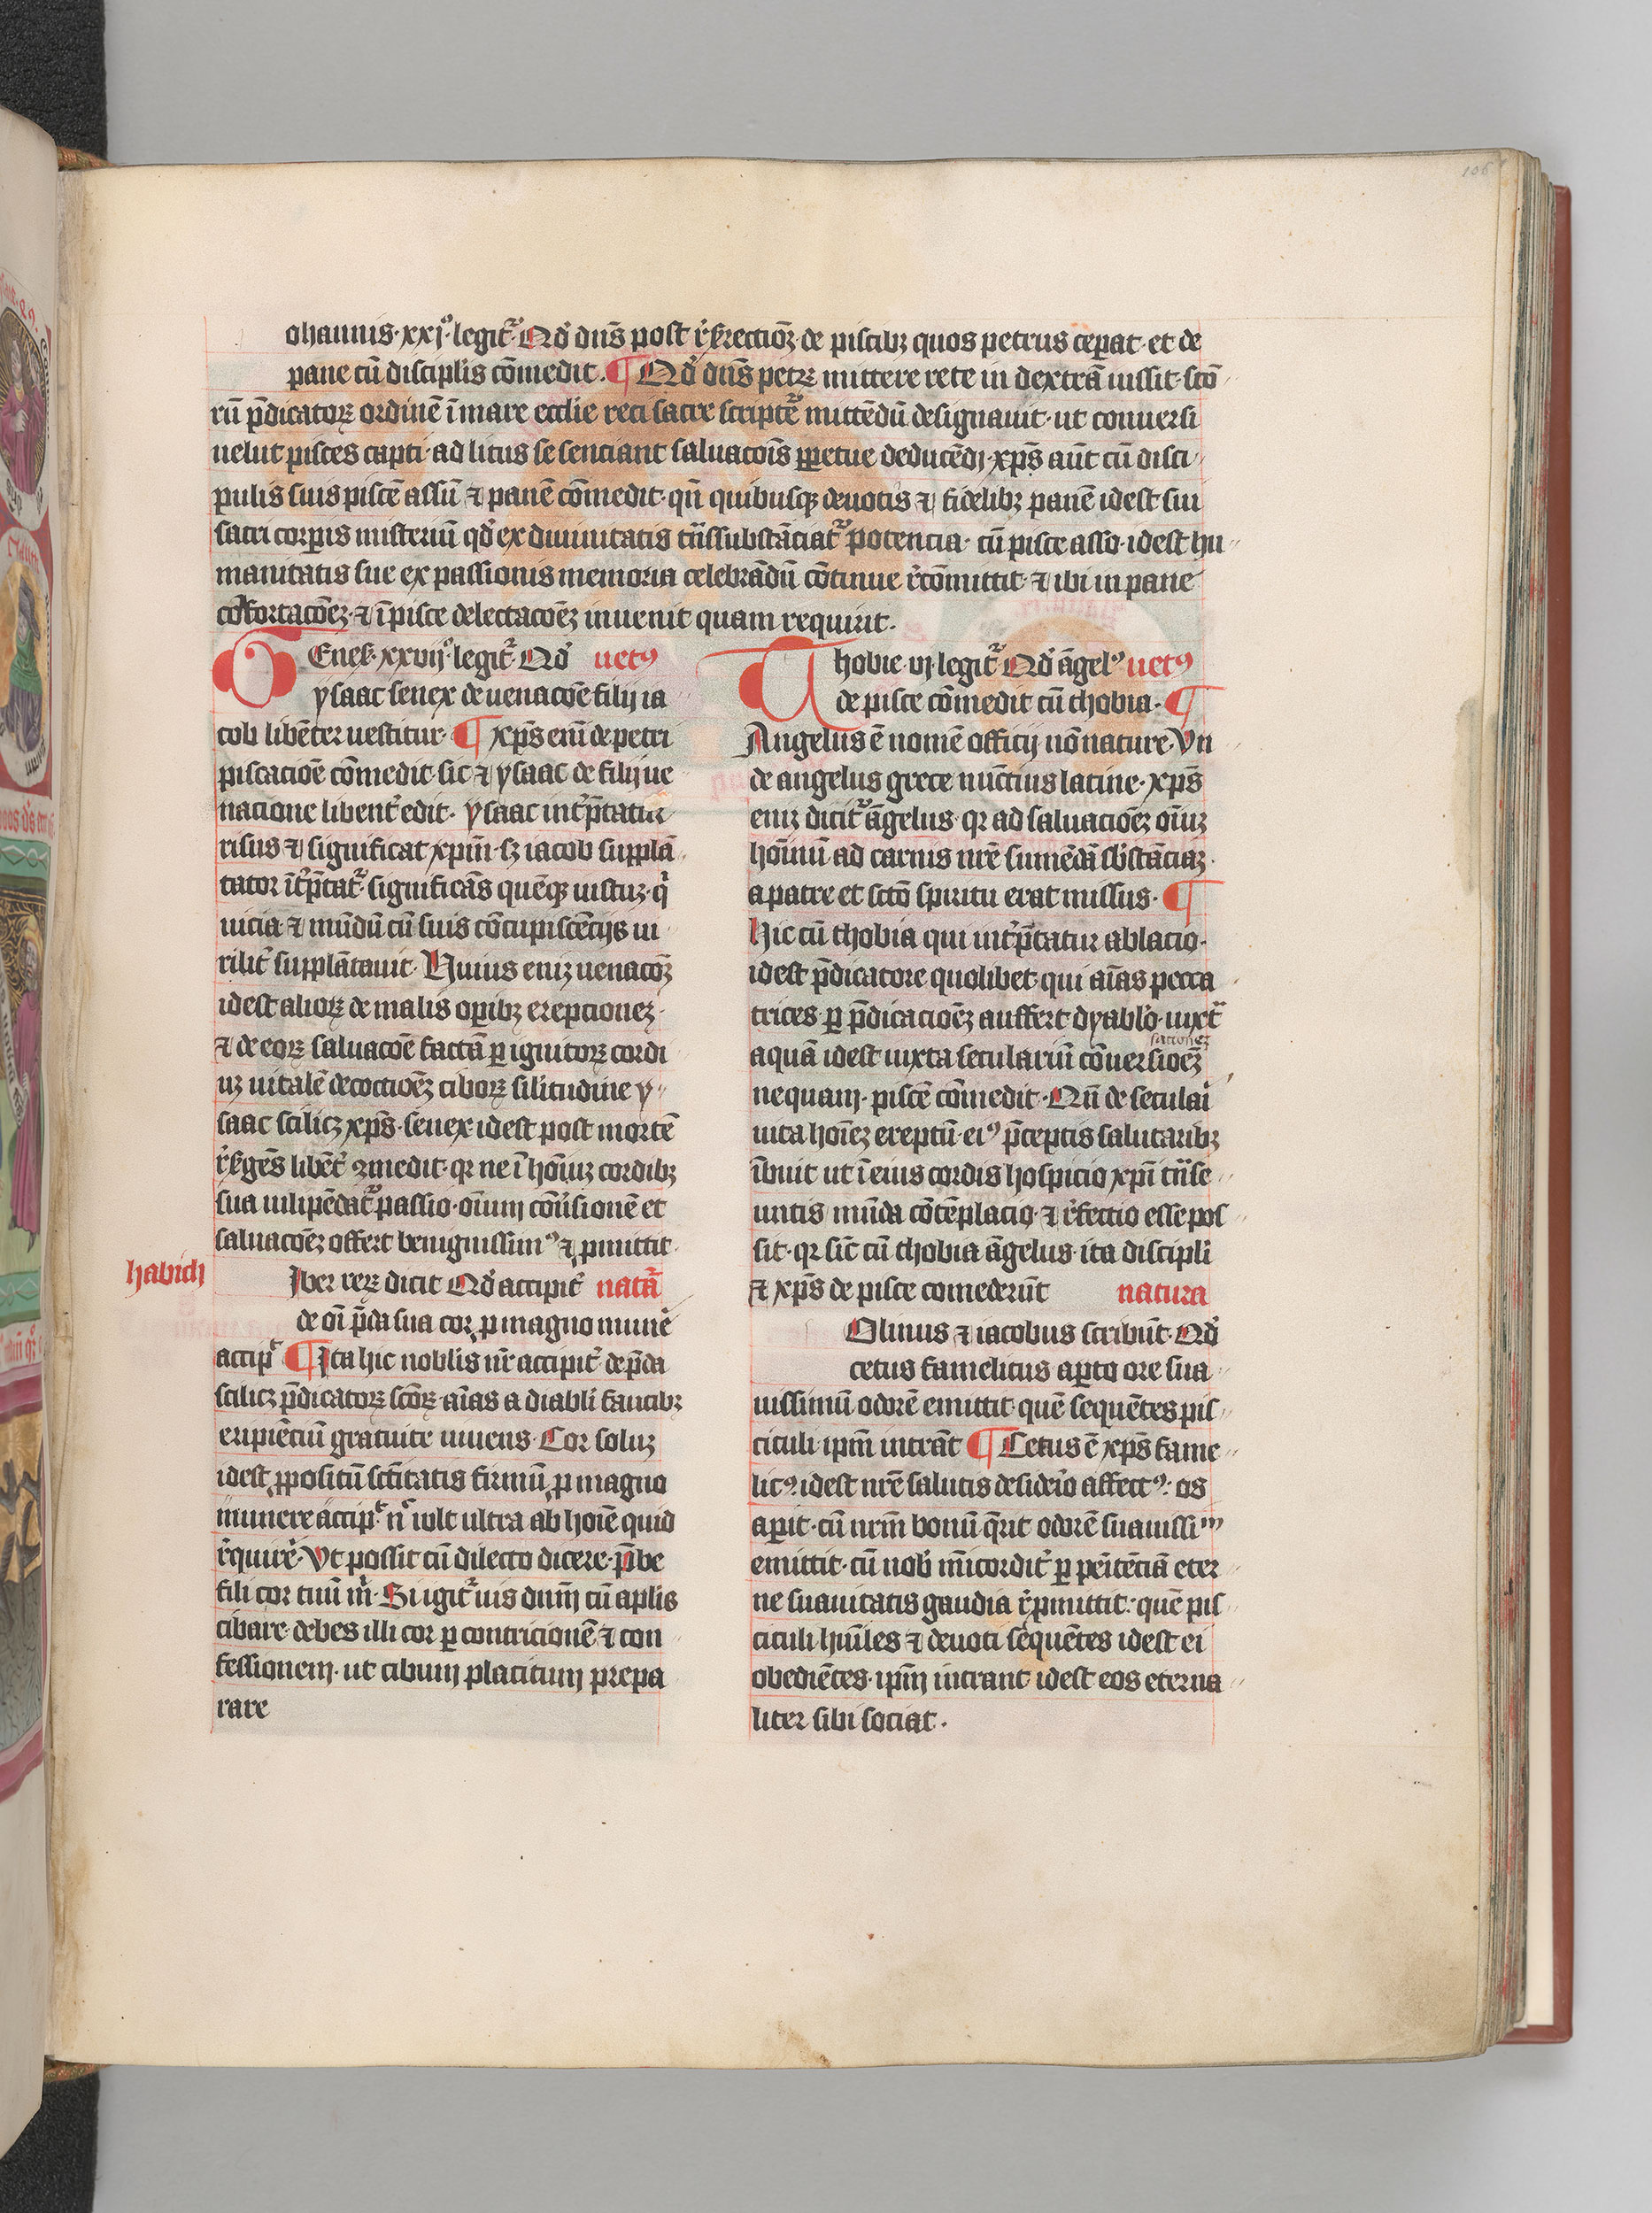 106
ohannis·xxj°·legit᷑·Qd̕ dn̄s post r̕srectiōȝ·de piscibȝ quos petrus cep̄at·et de
pane cū disciplis cōmedit·¶ Qd̕ dn̄s petrꝫ mittere rete in dextrā iussit·scō
rū p̄dicatoꝝ ordinē ī mare ecclie reci sacre scriptē᷑ mittēdū designauit·ut conuersi
uelut pisces capti·ad litus se senciant saluacōis ꝑpetue deducēdi·xp̄s aūt cū disci
pulis suis piscē assū ⁊ panē cōmedit·qn̄ quibusqȝ deuotis ⁊ fidelibȝ panē idest sui
sacri corꝑis misteriū qd̕ ex diuinitatis tn̄ssubstāciat᷑ potencia·cū pisce asso·idest hu
manitatis sue ex passionis memoria celebrādū cōtinue r̕cōmittit·⁊ ibi in pane
cōfortacōeȝ·⁊ ī pisce delectacōeȝ inuenit quam requirit·
GEneß·xxvij°·legit᷑·Qd̕ uetꝰ
ysaac senex de uenacōe filij ia
cob libēter uestitur·¶ xp̄s eni de petri
piscacioē cōmedit·sic ⁊ ysaac de filij ue
nacione libent̕ edit·ysaac int̕p̄tatur
risus ⁊ significat xpm̄·sȝ iacob supplā
tator īt̕p̄tat᷑·significās quēqȝ iustuȝ·q̕
uicia ⁊ mūdū cū suis cōcupiscēcijs ui
rilit̕ supplātauit·Huius eniȝ uenacōȝ
idest alioꝝ de malis oꝑibȝ erepcioneȝ·
⁊ de eoꝝ saluacōe factā ꝑ ignitoꝝ cordi
uȝ uitalē decoctioēȝ ciboꝝ silitudine y
saac scilicȝ xp̄s·senex idest post mortē
r̕sgēs libēt̕ ꝯmedit·qr ne ī hoīuȝ cordibȝ
sua uilipēdat᷑ passio·oīum cōu̕sionē et
saluacōeȝ offert benignissimꝰ ⁊ ꝓmittit·
habich
Iber reꝝ dicit Qd̕ accipit̕ natā᷑
de oī p̄da sua cor, ꝓ magno mun̄e
accip᷑ ¶ Ita hic nobilis nr̄ accipit̕ de p̄da
scilicȝ p̄dicatoꝝ scōꝝ·aīas a diabli faucibȝ
eripiēciū gratuite uiuens·Cor soluȝ
idest ꝓpositū sc̄titatis firmū, ꝓ magno
munere accip᷑ n̕ uolt ultra ab hoīe quid
r̕quirē·Vt possit cū dilecto dicere·p̄be
fili cor tuū m̕·Si ugit᷑ uis dūm̄ cū aplis
cibare·debes illi cor ꝑ contricionē ⁊ con
fessionem·ut cibum placitum prepa
rare
Thobie·vj·legit᷑ Qd̕ āgelꝰ uetꝰ
de pisce cōmedit cū thobia·¶
Angelus ē nomē officij nō nature·Vn
de angelus grece nūctius latine·xp̄s
eniȝ dicit᷑ āgelus·qr ad saluacioēȝ oīuȝ
hoīnū ad carnis nr̄e sumēdā sb̄stāciaȝ·
a patre et scō spiritu erat missus·¶
Hic cū thobia qui int̕p̄tatur ablacio·
idest p̄dicatore quolibet·qui aīas pecca
trices·ꝑ p̄dicacioēȝ auffert dyablo·iuxt᷑
aquā idest iuxta seculariū cōuersioēȝ
nequam·piscē cōmedit·Qn̄ de seculai᷑
uita hoīeȝ ereptū·eiꝰ p̄ceptis salutaribȝ
ībuit ut ī eius cordis hospicio xpī tn̄se
untis mūda cōtēplacio·⁊ r̕fectio esse pos
sit·qr sic̄ cū thobia āgelus·ita discipli
⁊ xp̄s de pisce comederūt natura
Olinus ⁊ iacobus scribūt·Qd̕
cetus famelicus aꝑto ore sua
uissimū odorē emittit·quē sequētes pis
ciculi ipm̄ intrāt ¶ Cetus ē xp̄s fame
licꝰ·idest nr̄e salutis desiderio affectꝰ·os
aꝑit·cū nrm̄ bonū q̄rit odorē suauissiᵐ
emittit·cū nob̕ m̄icordit̕ ꝑ penitēciā eter
ne suauitatis gaudia r̕ꝓmittit·quē pis
ciculi hūiles ⁊ deuoti sequētes idest ei
obediētes·ipm̄ intrant idest eos eterna
liter sibi sociat·